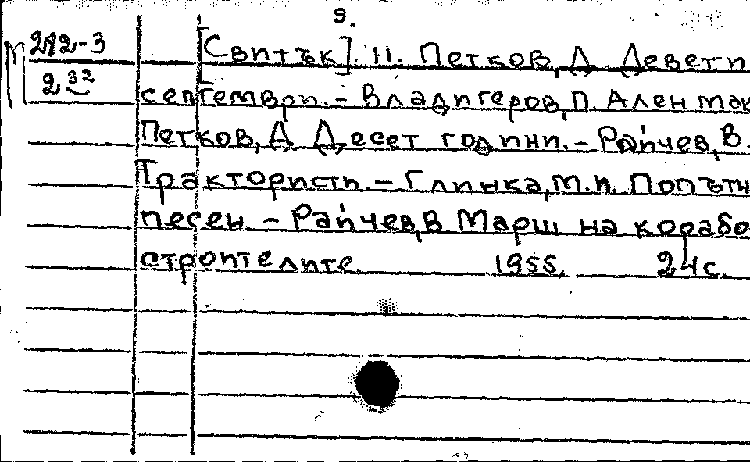 9.
212-3 [Свитък]. 11. Петков, Д. Девети
2 32 септември. - Владигеров, П. Ален мак
Петков, Д. Десет години. - Райчев, В.
Трактористи. - Глинка, М. И. Попътн
песен. - Райчев, В. Марш на корабо
строителите. 1955. 24 с.